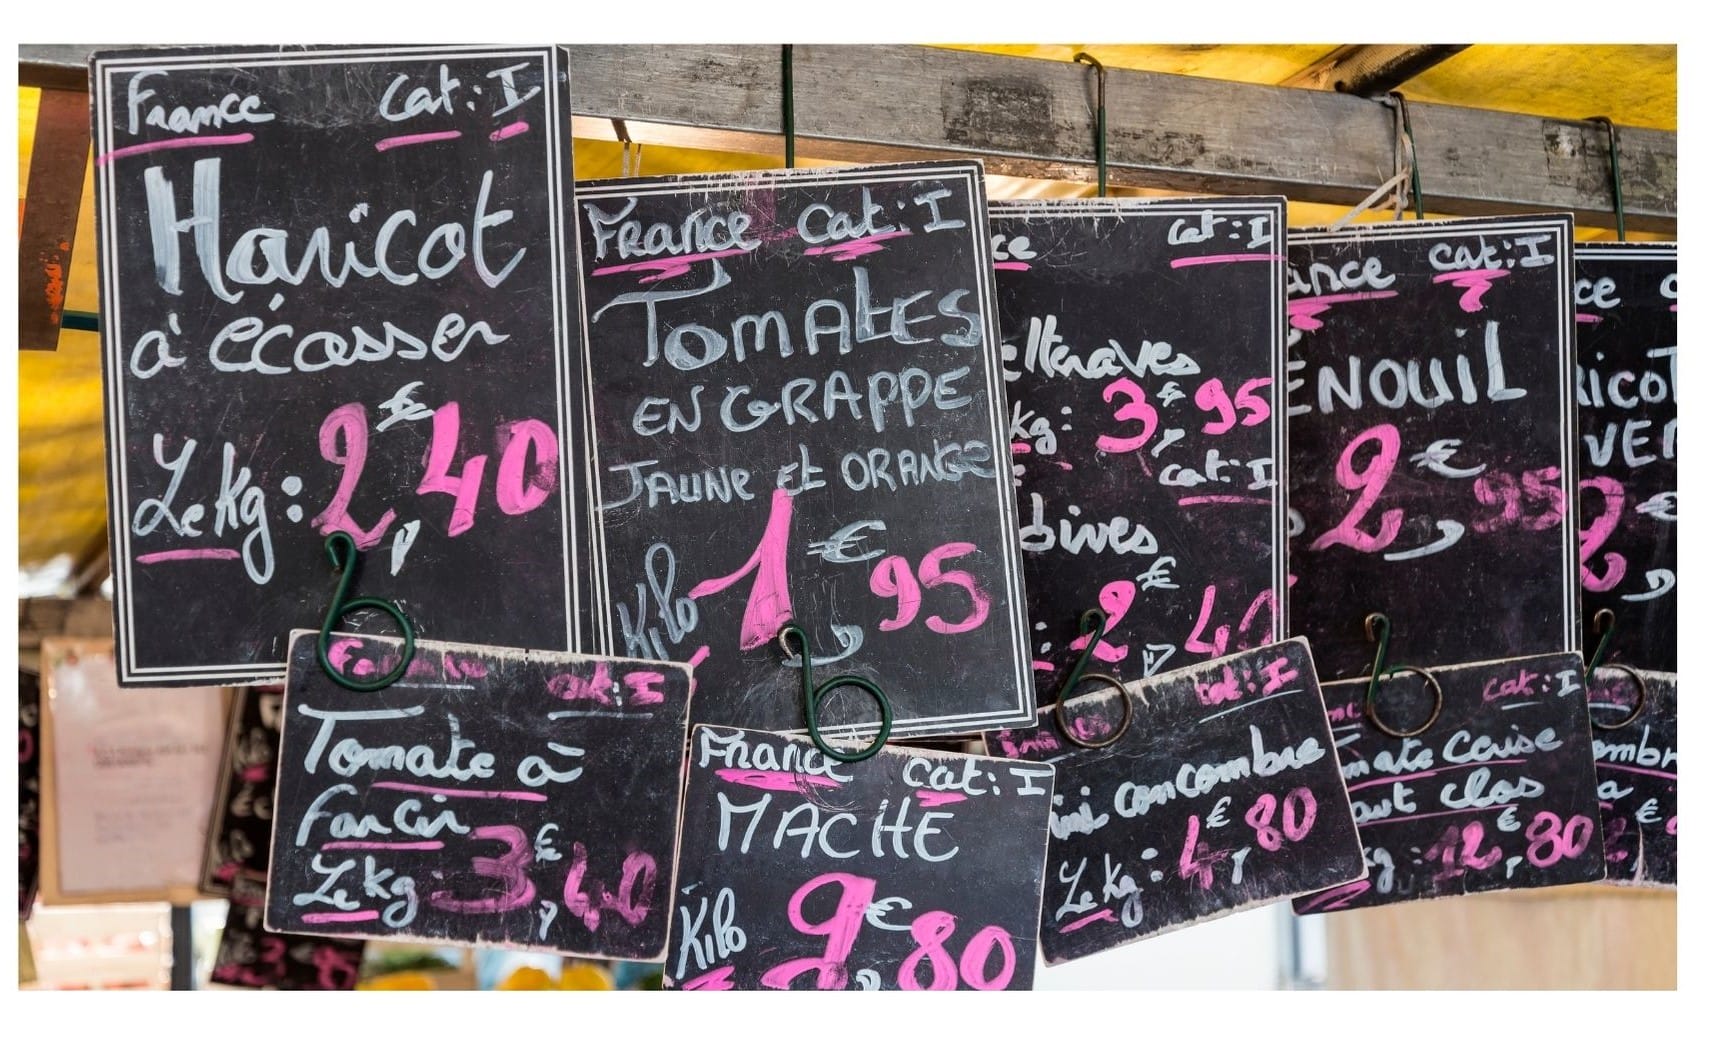 France Cat: I
Haricot
à écosser
Le kg: 2€,40
France Cat: I
TOMATES
EN GRAPPE
JAUNE et ORANGE
Kilo 1€,95
ce Cat: I
elteraves
kg: 3€,95
Cat: I
dives
: 2€,40
ance Cat: I
ENOUIL
2€,95
ce C
RICOT
VER
2€,
Cat: I
Tomate à
Farcir
Le kg 3€,40
France Cat: I
MACHE
Kilo 9€,80
Cat: I
ini concombre
Le kg: 4€,80
Cat: I
mate Cerise
aut clos
kg: 12€,80
ombr
a €